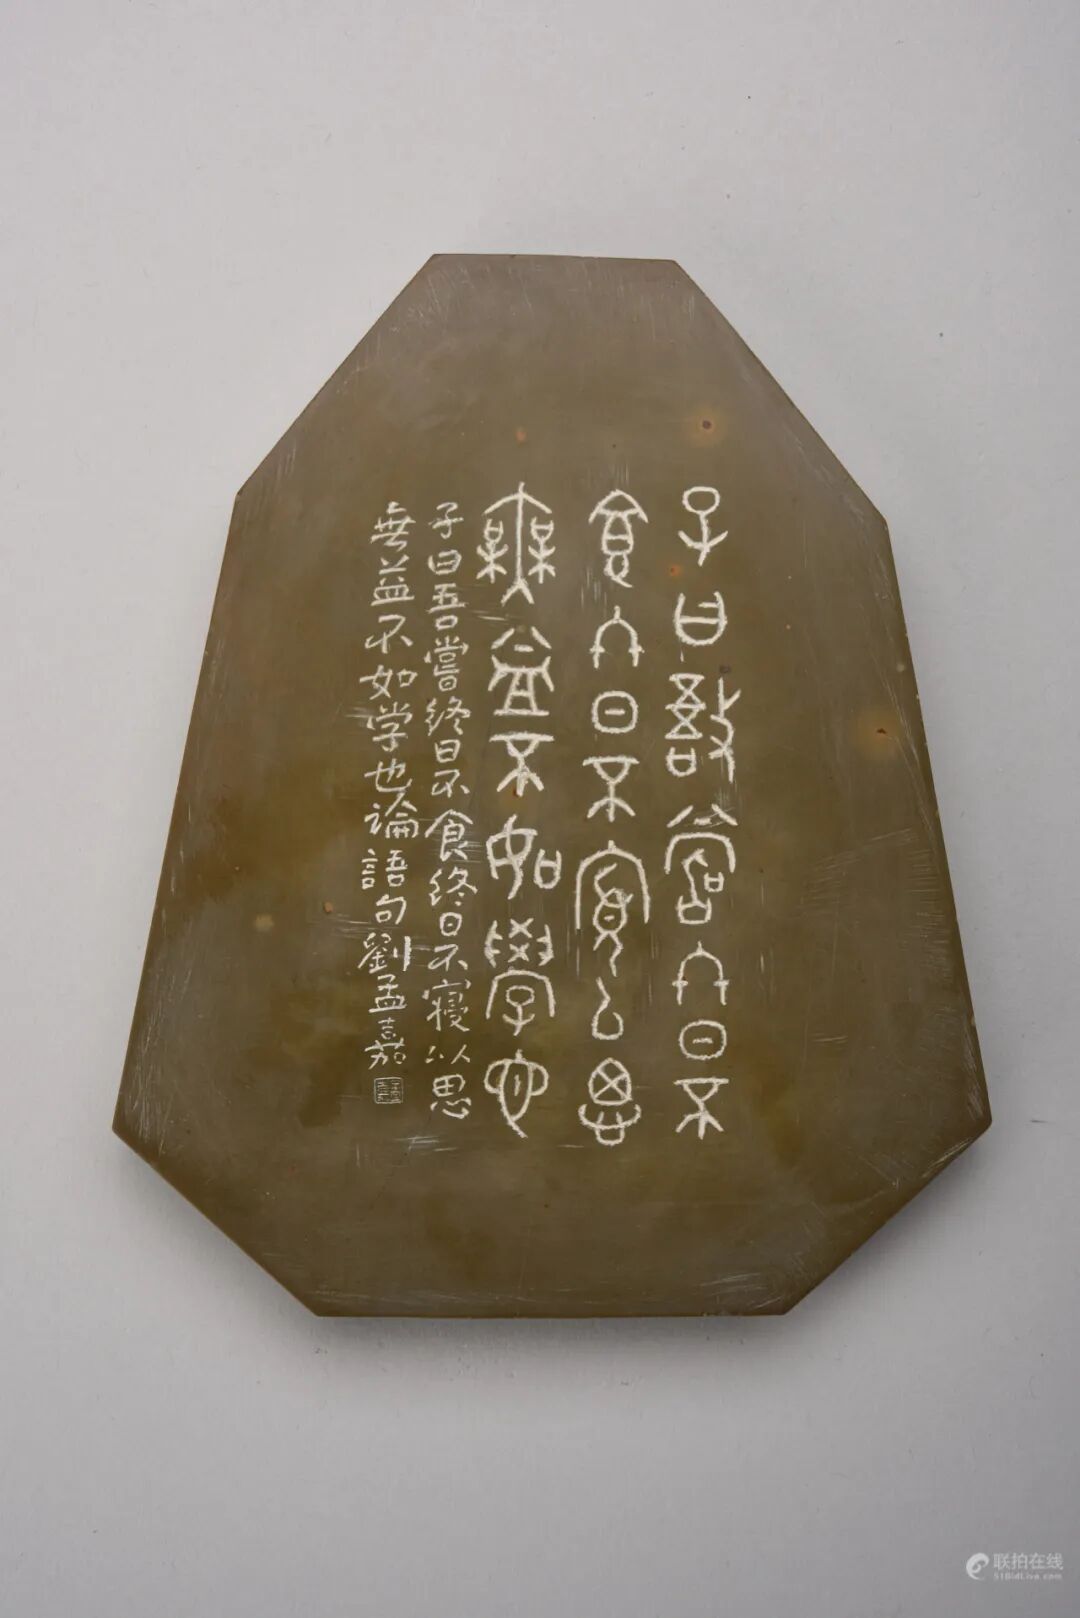 子曰吾嘗終日不
食終日不寢以思
無益不如學也
子曰吾嘗終日不食終日不寢以思
無益不如学也論語句劉孟嘉
联拍在线
51BidLive.com